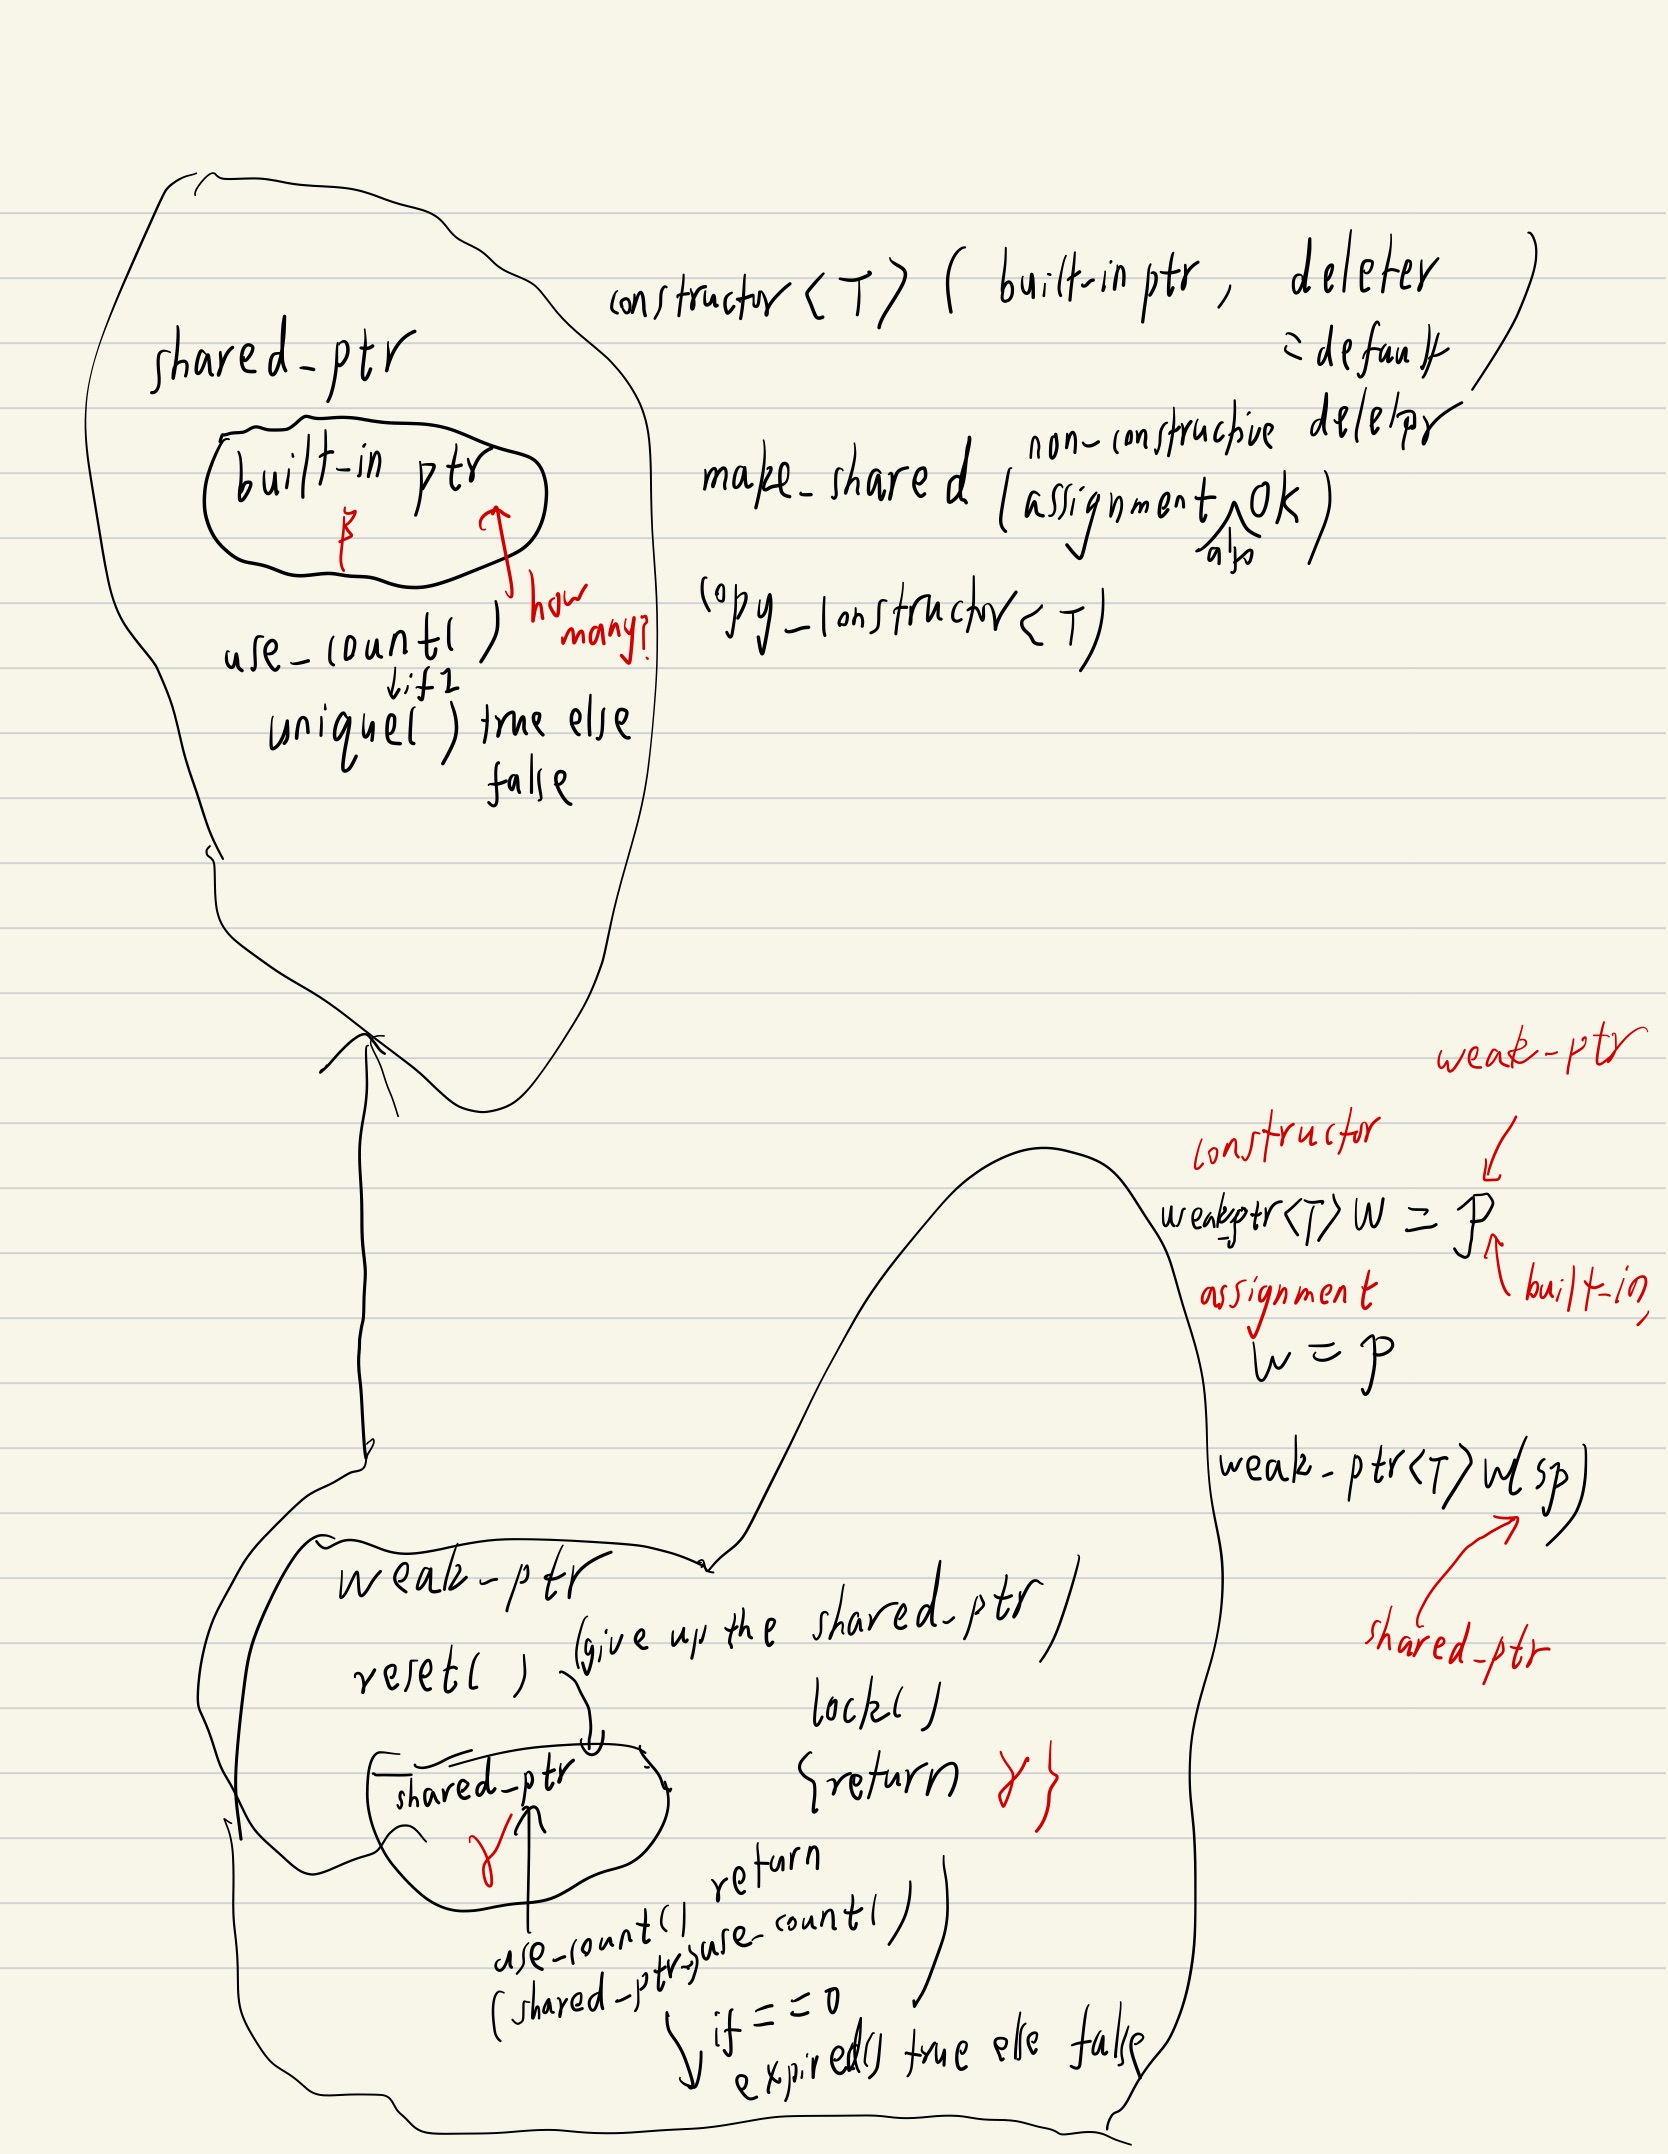 shared_ptr
built-in ptr
β
how
many?
use_count()
↓if 1
unique() true else
false
constructor<T> ( built-in ptr, deleter
= default
deleter )
non-constructive
make_shared (assignment OK)
also
copy_constructor<T>
weak-ptr
constructor
weak_ptr<T> W = P
built-in
assignment
W = P
weak-ptr<T> W(sp)
shared_ptr
weak-ptr
(give up the shared_ptr)
reset()
lock()
{return γ}
shared_ptr
γ
use_count() return
(shared_ptr->use_count())
if == 0
expired() true else false